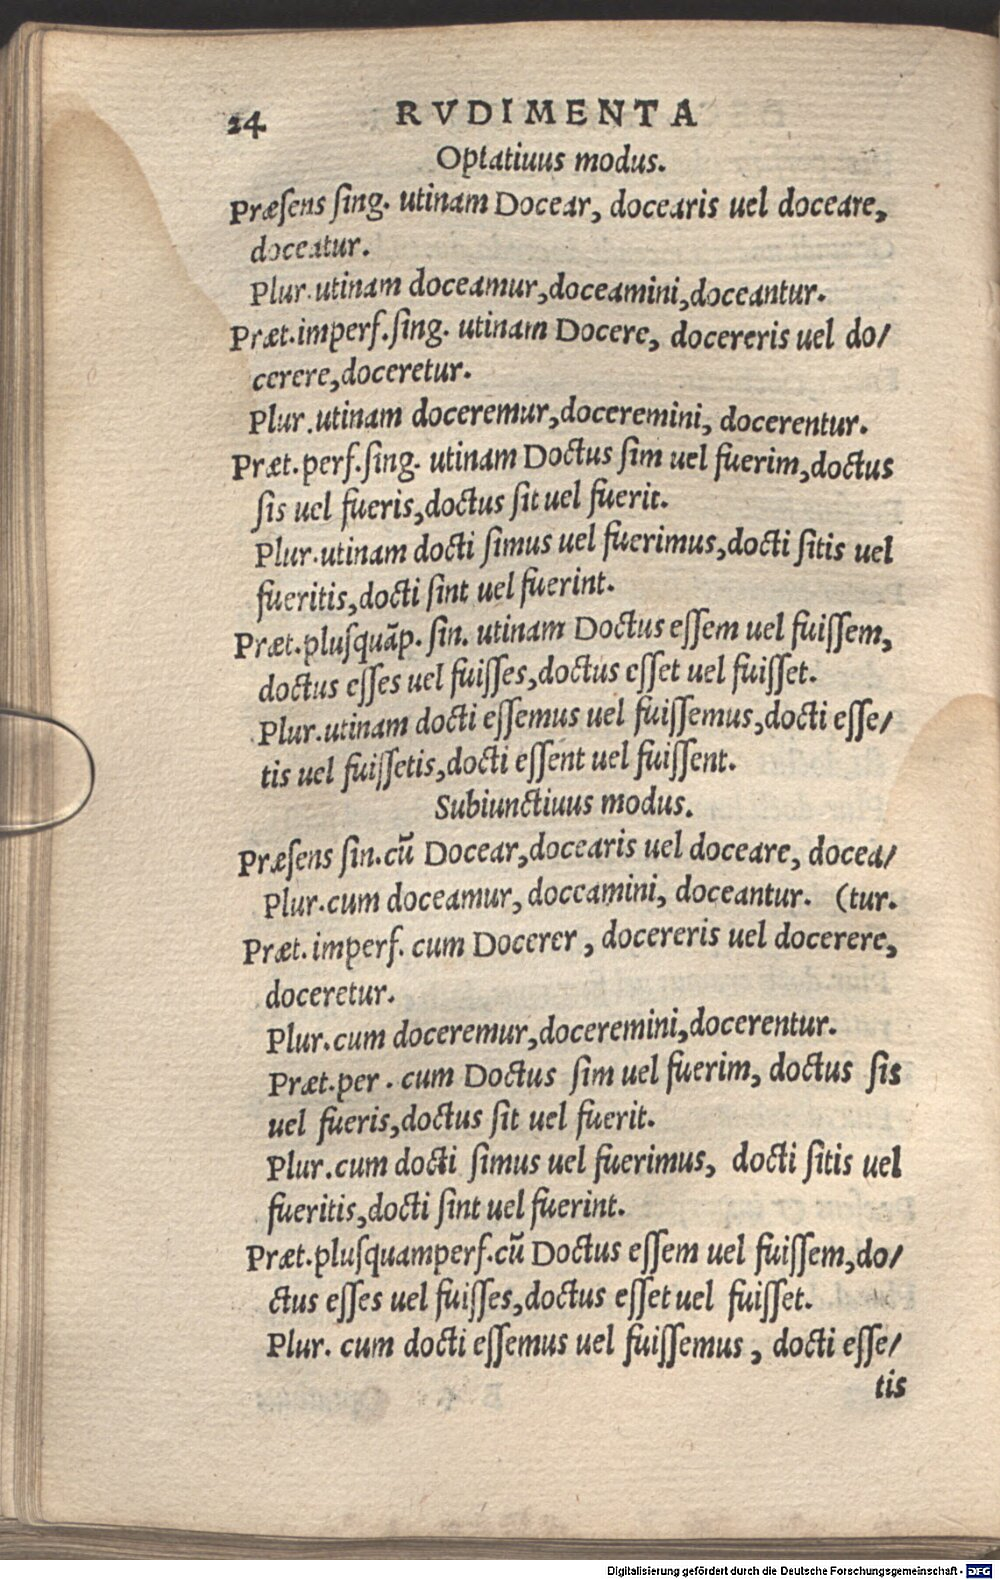 24 RVDIMENTA
Optatiuus modus.
Præſens ſing. utinam Docear, docearis uel doceare,
doceatur.
Plur. utinam doceamur, doceamini, doceantur.
Præt. imperf. ſing. utinam Docere, docereris uel do/
cerere, doceretur.
Plur. utinam doceremur, doceremini, docerentur.
Præt. perf. ſing. utinam Doctus ſim uel fuerim, doctus
ſis uel fueris, doctus ſit uel fuerit.
Plur. utinam docti ſimus uel fuerimus, docti ſitis uel
fueritis, docti ſint uel fuerint.
Præt. pluſquāp. ſin. utinam Doctus eſſem uel fuiſſem,
doctus eſſes uel fuiſſes, doctus eſſet uel fuiſſet.
Plur. utinam docti eſſemus uel fuiſſemus, docti eſſe/
tis uel fuiſſetis, docti eſſent uel fuiſſent.
Subiunctiuus modus.
Præſens ſin. cū Docear, docearis uel doceare, docea/
Plur. cum doceamur, doceamini, doceantur. (tur.
Præt. imperf. cum Docerer, docereris uel docerere,
doceretur.
Plur. cum doceremur, doceremini, docerentur.
Præt. per. cum Doctus ſim uel fuerim, doctus ſis
uel fueris, doctus ſit uel fuerit.
Plur. cum docti ſimus uel fuerimus, docti ſitis uel
fueritis, docti ſint uel fuerint.
Præt. pluſquamperf. cū Doctus eſſem uel fuiſſem, do/
ctus eſſes uel fuiſſes, doctus eſſet uel fuiſſet.
Plur. cum docti eſſemus uel fuiſſemus, docti eſſe/
tis
Digitalisierung gefördert durch die Deutsche Forschungsgemeinschaft - DFG